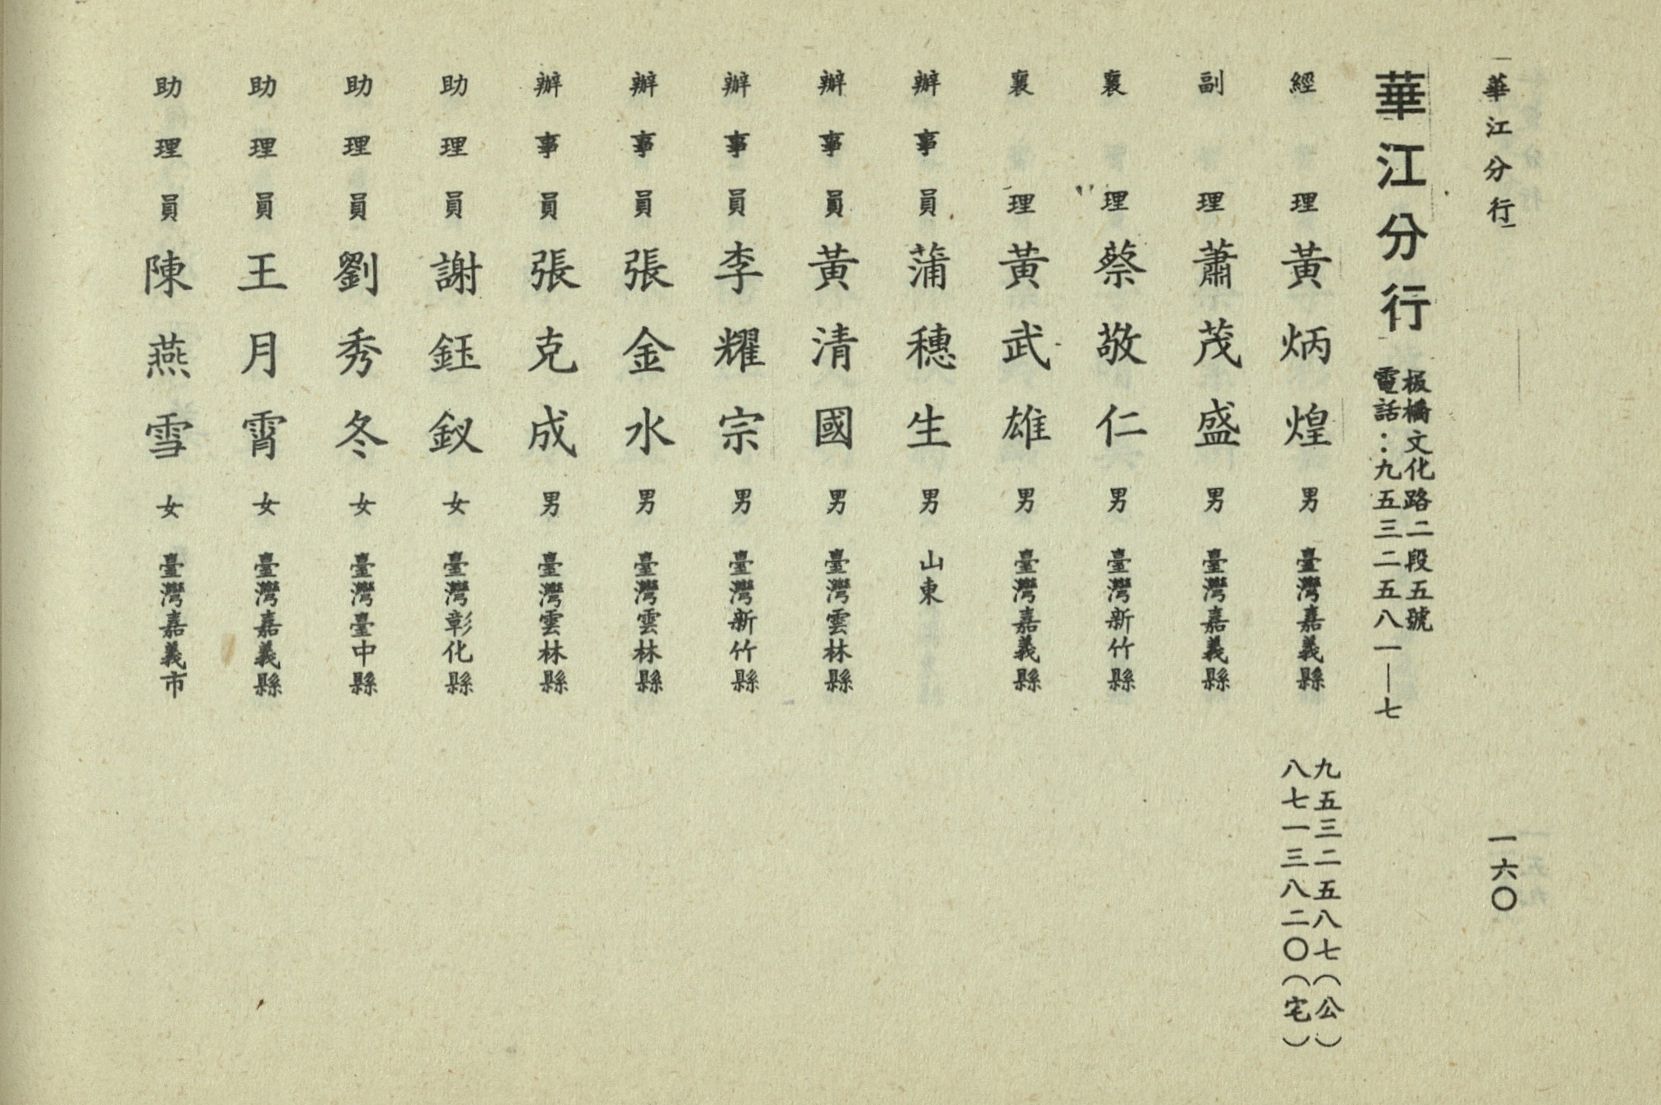 華江分行
一六〇
華江分行
板橋文化路二段五號
電話：九五三二五八一—七
經理 黃炳煌 男 臺灣嘉義縣
九五三二五八七（公）
八七一三八二〇（宅）
副理 蕭茂盛 男 臺灣嘉義縣
襄理 蔡敬仁 男 臺灣新竹縣
襄理 黃武雄 男 臺灣嘉義縣
辦事員 蒲穗生 男 山東
辦事員 黃清國 男 臺灣雲林縣
辦事員 李耀宗 男 臺灣新竹縣
辦事員 張金水 男 臺灣雲林縣
辦事員 張克成 男 臺灣雲林縣
助理員 謝鈺釵 女 臺灣彰化縣
助理員 劉秀冬 女 臺灣臺中縣
助理員 王月霄 女 臺灣嘉義縣
助理員 陳燕雪 女 臺灣嘉義市